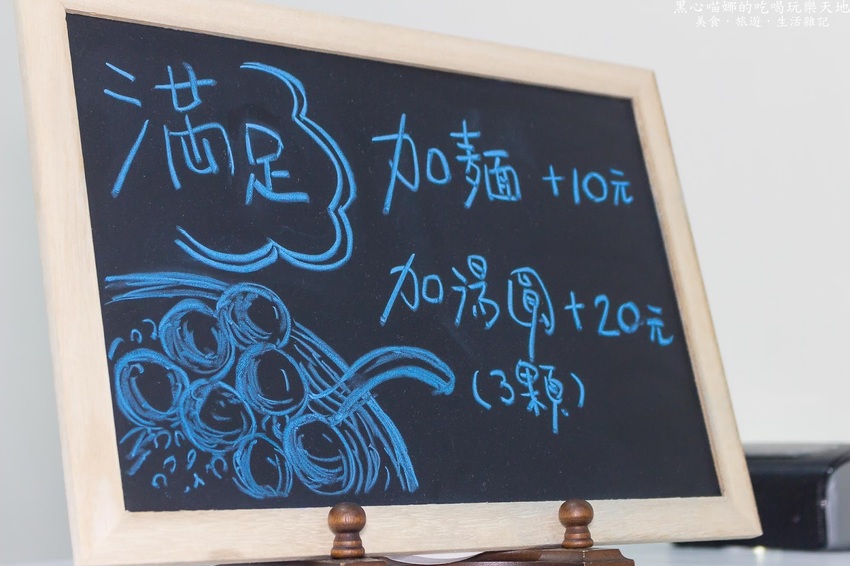 黑心喵娜的吃喝玩樂天地
美食·旅遊·生活雜記
滿足
加麵 +10元
加湯圓 +20元
(3顆)